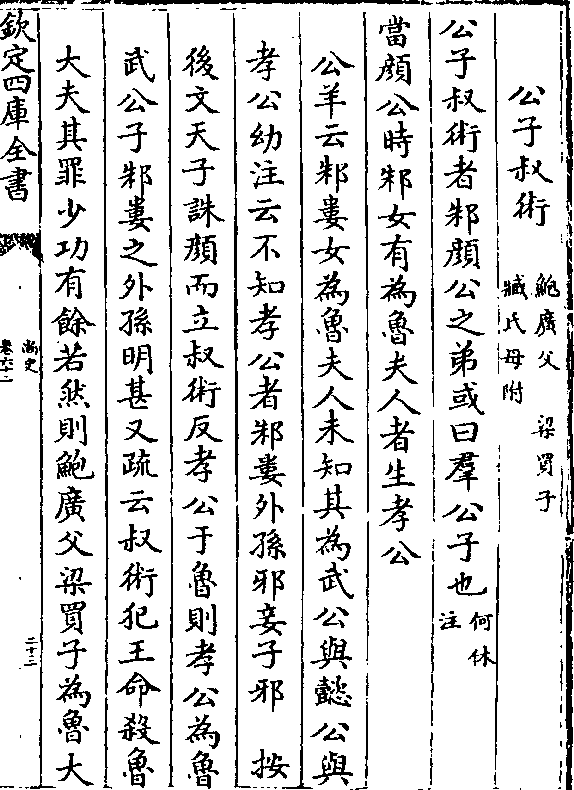 公子叔術 鮑廣父 梁買子
臧氏母附
公子叔術者邾顏公之弟或曰羣公子也 何休
注
當顏公時邾女有為魯夫人者生孝公
公羊云邾婁女為魯夫人未知其為武公與懿公與
孝公幼注云不知孝公者邾婁外孫邪妾子邪 按
後文天子誅顏而立叔術反孝公于魯則孝公為魯
武公子邾婁之外孫明甚又疏云叔術犯王命殺魯
大夫其罪少功有餘若然則鮑廣父梁買子為魯大
欽定四庫全書
尚史
卷六十二
二十三